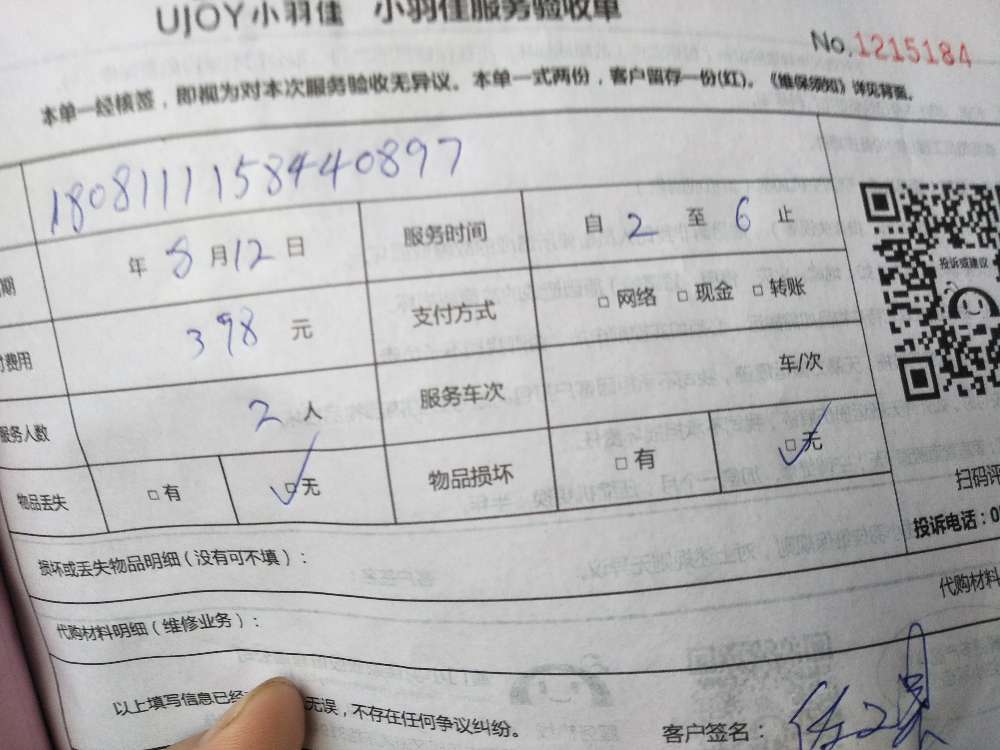 UJOY小羽佳 小羽佳服务验收单
No.1215184
本单一经核签，即视为对本次服务验收无异议。本单一式两份，客户留存一份(红)。《维保须知》详见背面。
18081111584440897
期 年 8 月 12 日 服务时间 自 2 至 6 止
付费用 398 元 支付方式 □ 网络 □ 现金 □ 转账
服务人数 2 人 服务车次 车/次
物品丢失 □ 有 □ 无 物品损坏 □ 有 □ 无
投诉或建议
扫码评
投诉电话：0
损坏或丢失物品明细（没有可不填）：
代购材料
代购材料明细（维修业务）：
以上填写信息已经 无误，不存在任何争议纠纷。
客户签名：